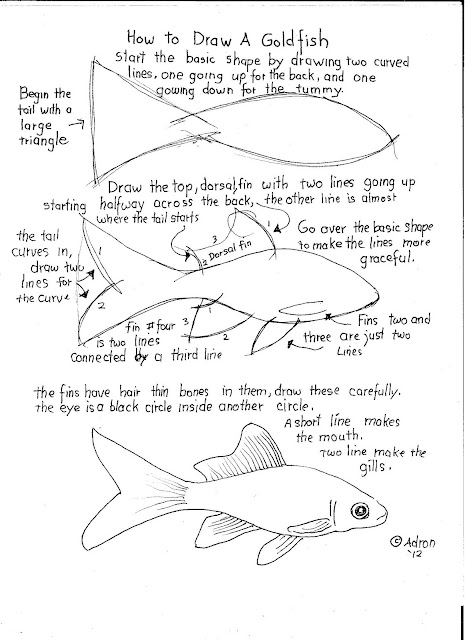 How to Draw A Goldfish
Start the basic shape by drawing two curved
lines, one going up for the back, and one
gowing down for the tummy.
Begin the
tail with a
large
triangle
Draw the top, dorsal, fin with two lines going up
starting halfway across the back, the other line is almost
where the tail starts
Go over the basic shape
to make the lines more
graceful.
the tail
curves in,
draw two
lines for
the curve
1
2
3
1
2 Dorsal fin
fin # four
is two lines
connected by a third line
3
1
2
Fins two and
three are just two
Lines
the fins have hair thin bones in them, draw these carefully.
the eye is a black circle inside another circle.
A short line makes
the mouth.
Two line make the
gills.
© Adron
'12